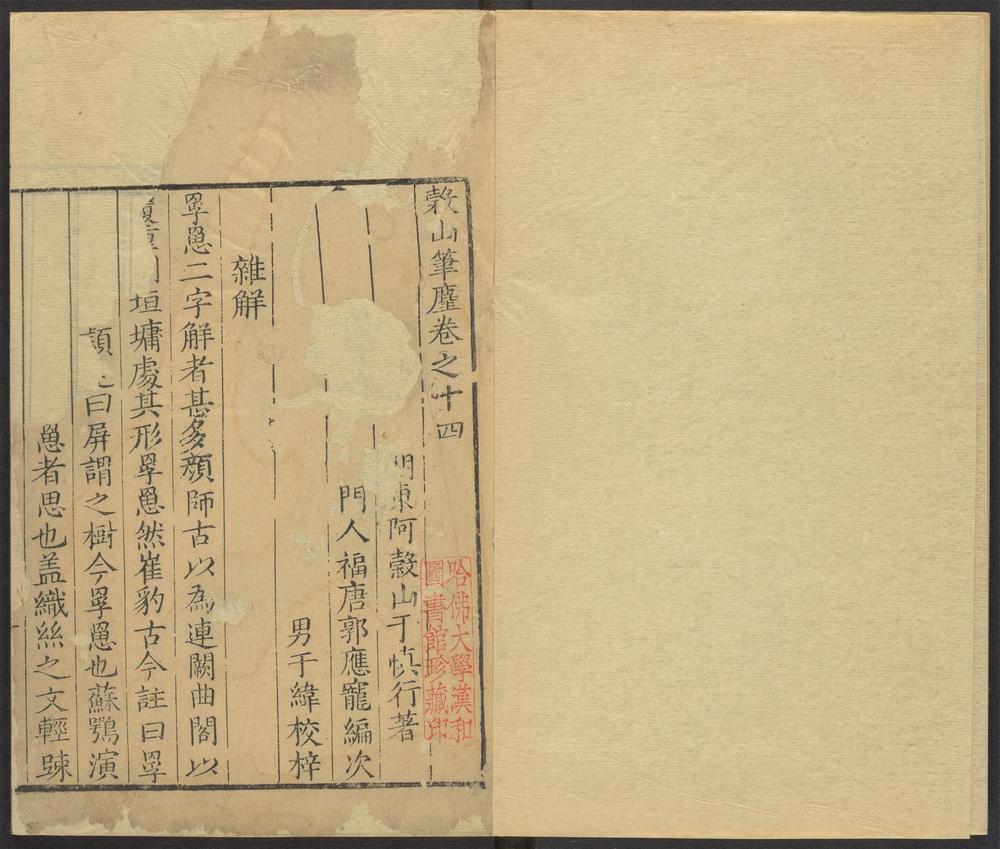 糓山筆麈卷之十四
明東阿糓山于慎行著
門人福唐郭應寵編次
男于緯校梓
雜解
罘罳二字解者甚多顔師古以為連闕曲閣以
垣墉處其形罘罳然崔豹古今註曰罘
曰屏謂之樹今罘罳也蘇鶚演
罳者思也盖織絲之文輕踈
哈佛大學漢和
圖書館珍藏印